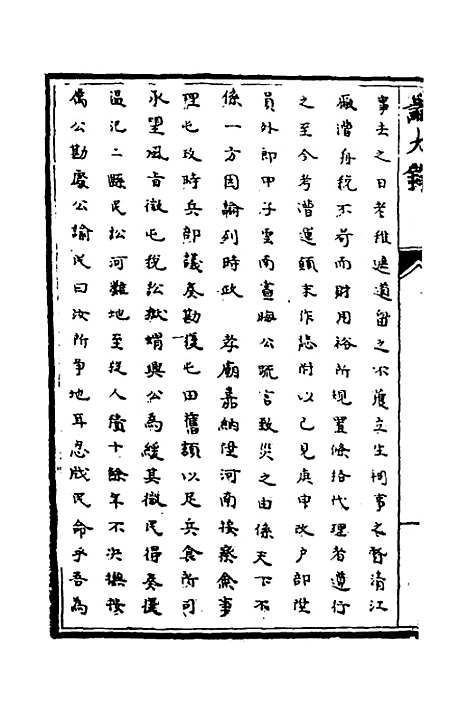 事去之日老稚遮道留之不獲立生祠事之督清江
廠漕舟稅不苛而財用裕所規置條格代理者遵行
之至今考漕運顛末作志附以己見庚申改戶部陞
員外郎甲子雲南晝晦公疏言致災之由係天下不
係一方因論列時政 孝廟嘉納陞河南按察僉事
理屯政時兵部議奏勘復屯田舊額以足兵食所司
承望風旨徵屯稅訟獄蝟興公為緩其徵民得奏復
溫汜二縣民訟河灘地至從人積十餘年不決撫按
屬公勘處公諭民曰汝所爭地耳忍戕民命乎吾為